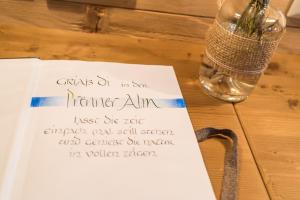 Grüaß Di in der
Prenner Alm
lasst die zeit
einfach mal still stehen
und genießt die natur
in vollen zügen